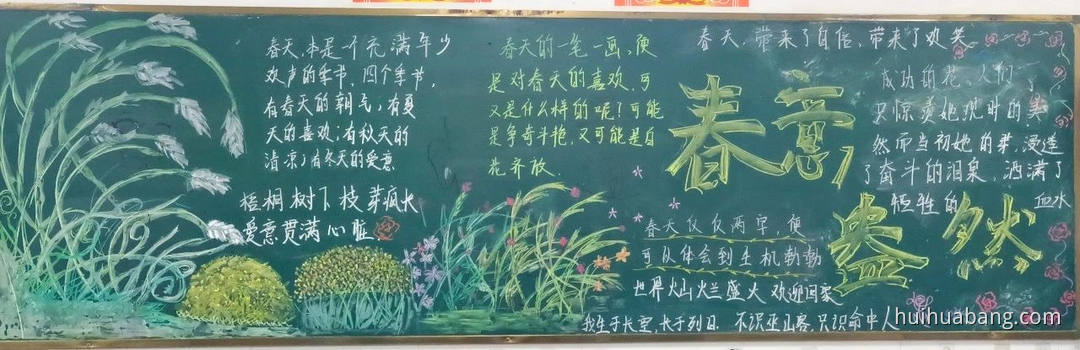 春天,本是一个充满年少
欢声的季节,四个季节,
有春天的朝气,有夏
天的喜欢;有秋天的
清凉;有冬天的爱意
梧桐树下枝芽疯长
爱意贯满心脏
春天的一笔一画,便
是对春天的喜欢,可
又是什么样的呢?可能
是争奇斗艳,又可能是百
花齐放.
春天,带来了自信,带来了欢笑
春意
盎然
成功的花,人们
只惊羡她现时的美
然而当初她的芽,浸透
了奋斗的泪泉,洒满了
牺牲的 血水
春天仅仅两字,便
可以体会到生机勃勃
世界灿烂盛大 欢迎回家
我生于长空,长于烈日. 不识巫山客,只识命中人
huihuabang.com